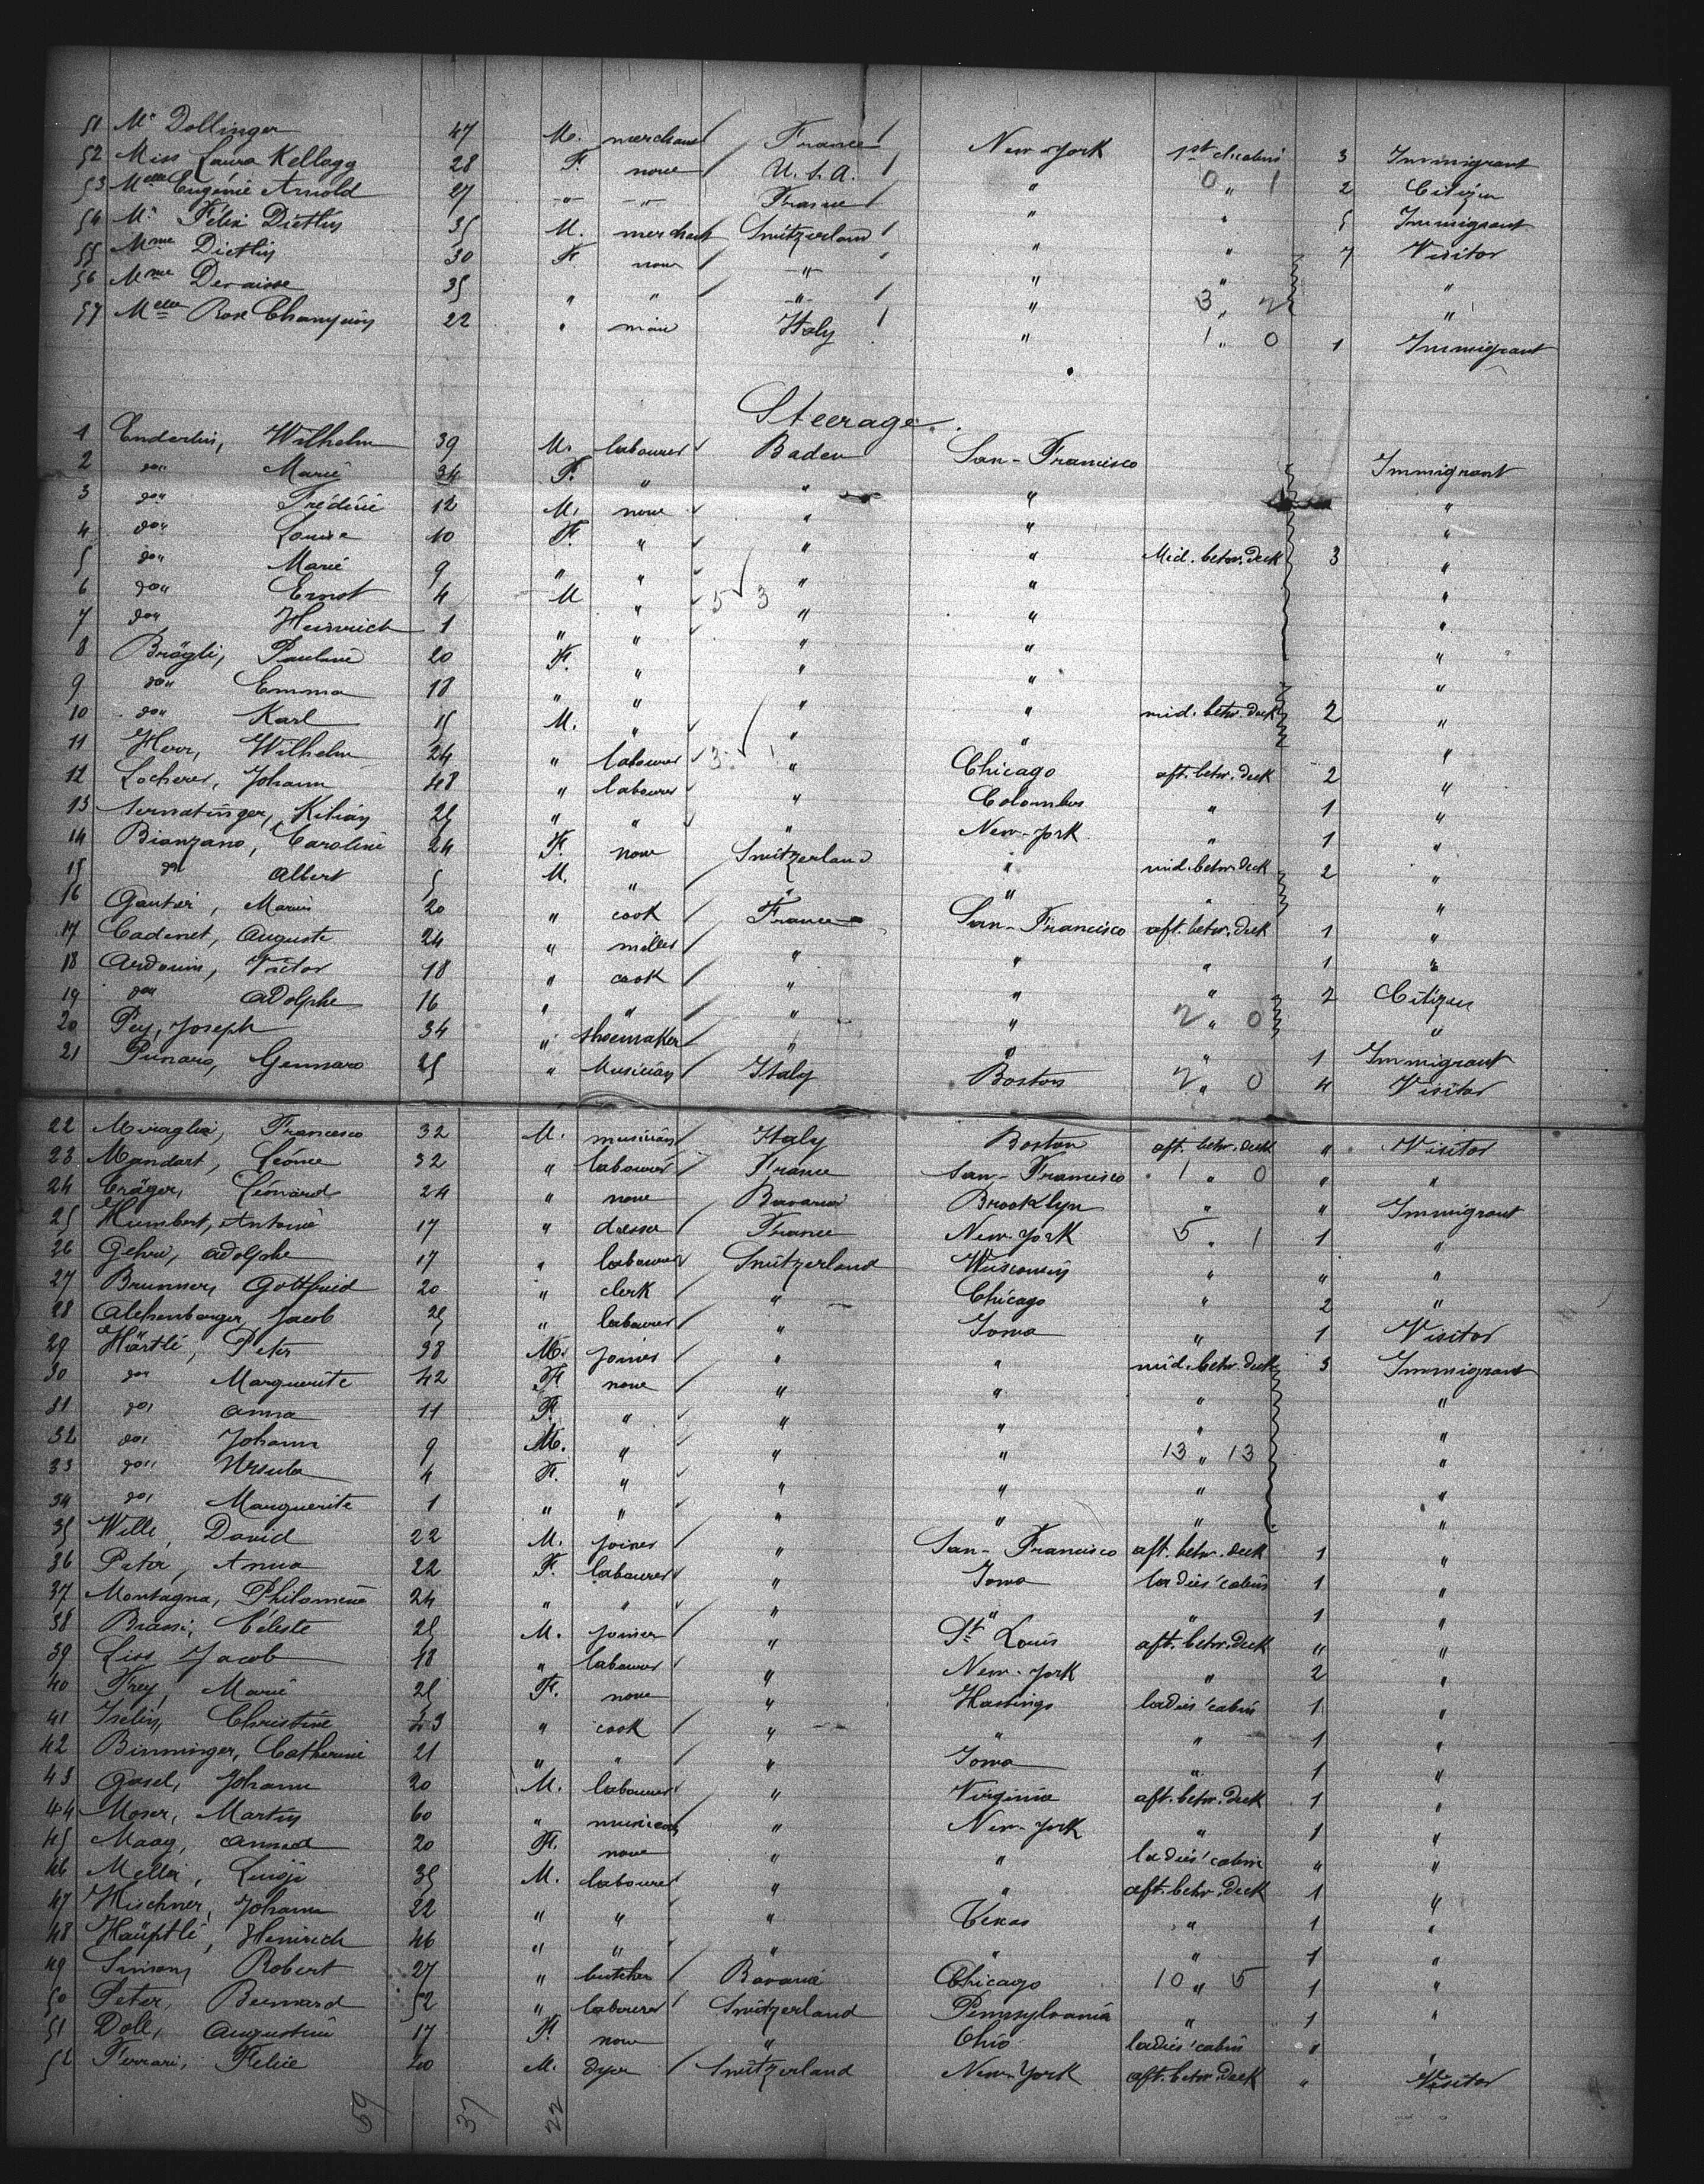 51 Mr Dollinger 47 M. merchant France New-York 1st cl. cabin 3 Immigrant
52 Miss Laura Kellogg 28 F. none U.S.A. " 0 " 1 2 Citizen
53 Melle Eugénie Arnold 27 -"- -"- France " " 5 Immigrant
54 Mr Félix Dietlin 35 M. merchant Switzerland " " 7 Visitor
55 Mme Dietlin 30 F. none -"- " " "
56 Mme 35 " " -"- " 3 " 2 "
57 Melle Rose 22 " Italy " 1 " 0 1 Immigrant
Steerage.
1 Enderlin, Wilhelm 39 M. labourer Baden San-Francisco Immigrant
2 do" Marie 34 F. " " " "
3 do" Frédéric 12 M. none " " "
4 do" Louise 10 F. " " " Mid. betw. deck 3 "
5 do" Marie 9 " " " " "
6 do" Ernst 4 M " 5 3 " " "
7 do" Heinrich 1 " " " " "
8 Brägli, Pauline 20 F. " " " "
9 do" Emma 18 " " " " mid. betw. deck 2 "
10 do" Karl 15 M. " " " "
11 Herr, Wilhelm 24 " labourer 3 1 " Chicago aft. betw. deck 2 "
12 Locherer, Johann 48 " labourer " Colombus " 1 "
13 Kilian 25 " " " New-York " 1 "
14 Bianzano, Caroline 24 F. none Switzerland " mid. betw. deck 2 "
15 do Albert 5 M. " " " " "
16 Gautier, Marius 20 " cook France San-Francisco aft. betw. deck 1 "
17 Cadenet, Auguste 24 " miller " " " 1 "
18 Ardouin, Victor 18 " cook " " " 2 Citizen
19 do" Adolphe 16 " " " " 2 " 0 "
20 Pey, Joseph 34 " shoemaker " " " 1 Immigrant
21 Pinaro, Gennaro 25 " Musician Italy Boston 2 " 0 4 Visitor
22 Miraglia, Francesco 32 M. musician Italy Boston aft. betw. deck " Visitor
23 Mandart, Léonce 32 " labourer France San-Francisco 1 " 0 " "
24 Cräger, Léonard 24 " none Bavaria Brooklyn " " Immigrant
25 Humbert, Antoine 17 " France New-York 5 " 1 1 "
26 Gehri, Adolphe 17 " labourer Switzerland Wisconsin " " "
27 Brunner, Gottfried 20 " clerk " Chicago " 2 "
28 Jacob 25 " labourer " Iowa " 1 Visitor
29 Härtli, Peter 38 M. joiner " " mid. betw. deck 3 Immigrant
30 do" Marguerite 42 F. none " " " "
31 do" Anna 11 F. " " " " "
32 do" Johann 9 M. " " " 13 " 13 "
33 do" Ursula 4 F. " " " " "
34 do" Marguerite 1 " " " " " "
35 Wille, David 22 M. joiner " San-Francisco aft. betw. deck 1 "
36 Peter, Anna 22 F. labourer " Iowa ladies' cabin 1 "
37 Montagna, Philomène 24 " " " " " 1 "
38 Brassi, Céleste 25 M. joiner " St Louis aft. betw. deck " "
39 Liss, Jacob 18 " labourer " New-York " 2 "
40 Frey, Marie 25 F. none " Hastings ladies' cabin 1 "
41 Iselin, Christine 23 " cook " " " 1 "
42 Binninger, Catherine 21 " " " Iowa " 1 "
43 Gasel, Johann 20 M. labourer " Virginia aft. betw. deck 1 "
44 Moser, Martin 60 " musician " New-York " 1 "
45 Maag, Anna 20 F. none " " ladies' cabin " "
46 Mella, Luigi 35 M. labourer " " aft. betw. deck 1 "
47 Hischner, Johann 22 " " " Texas " 1 "
48 Häuptli, Heinrich 46 " " " " " 1 "
49 Simson, Robert 27 " butcher Bavaria Chicago 10 " 5 1 "
50 Peter, Bernard 52 " labourer Switzerland Pennsylvania " 1 "
51 Doll, Augustine 17 F. none " Ohio ladies' cabin " "
52 Ferrari, Felice 20 M. dyer Switzerland New-York aft. betw. deck " Visitor
59 37 22